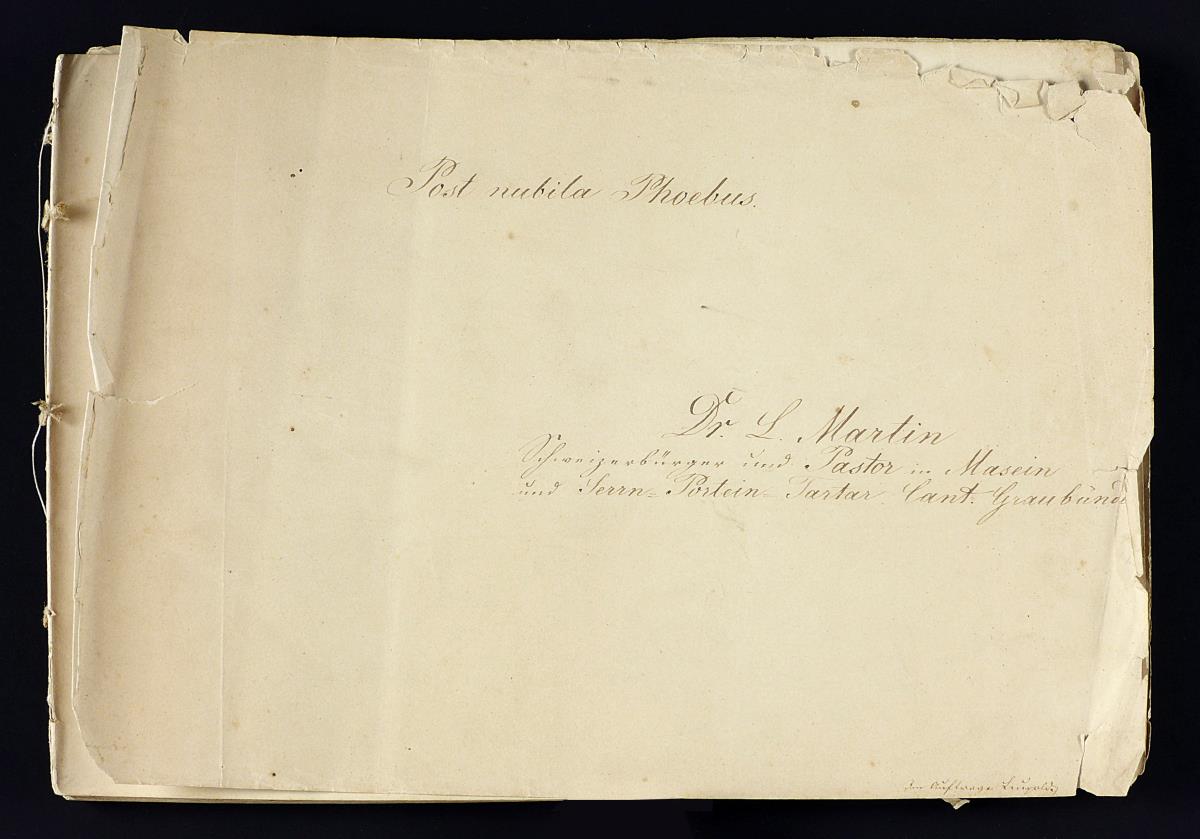 Post nubila Phoebus.
Dr. L. Martin
Schweizerbürger und Pastor in Masein
und Serrn= Portein= Tartar Cant. Graubünd
Im Auftrage Leupold